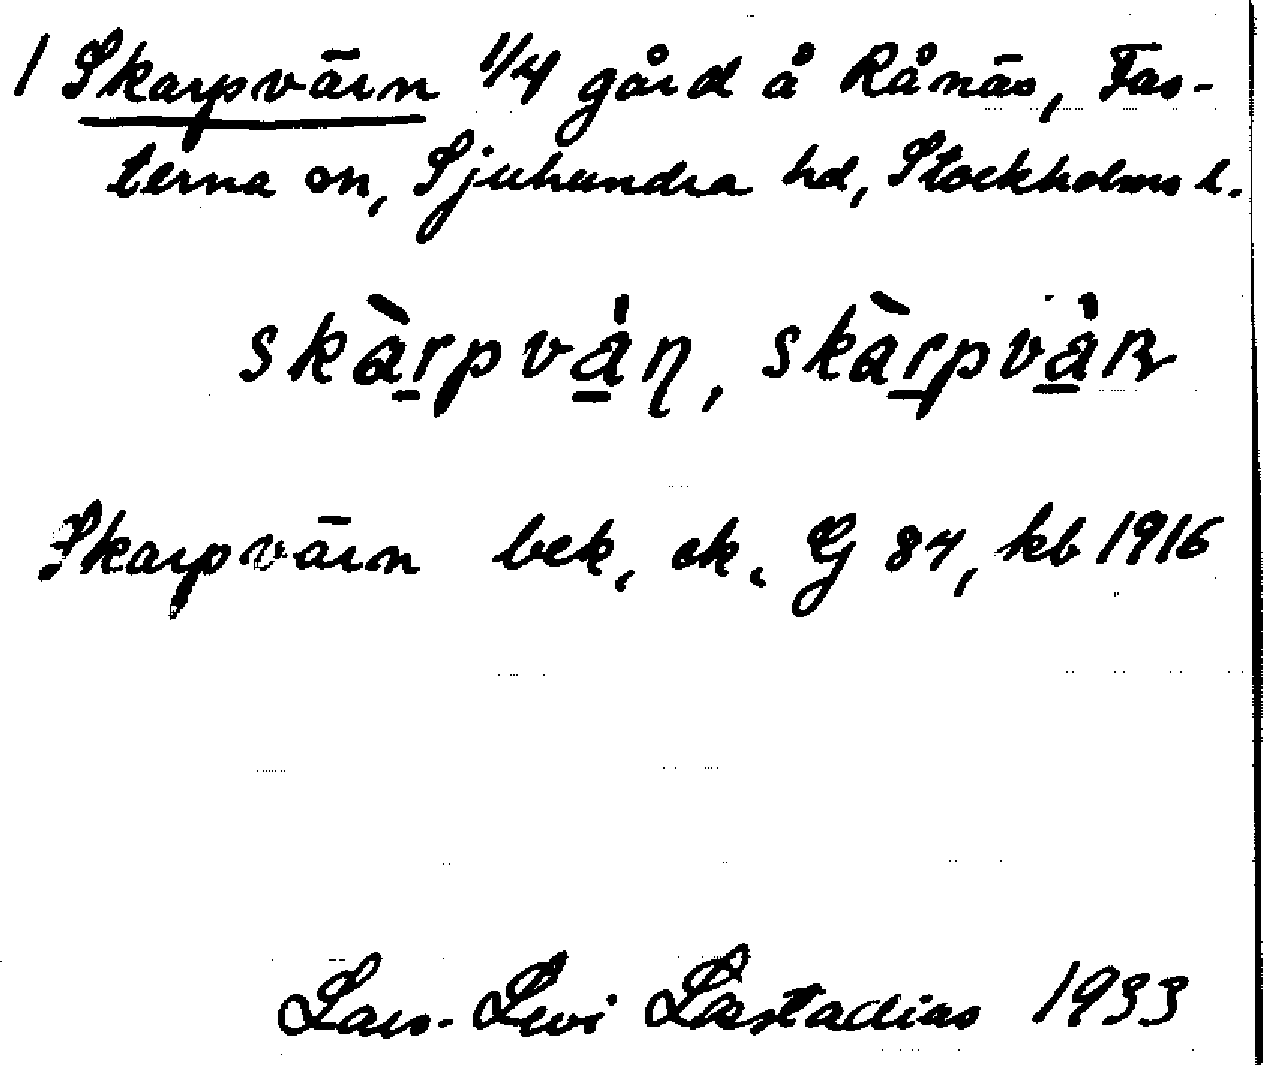 1 Skarpvärn 1/4 gård å Rånäs, Fas-
terna sn, Sjuhundra hd, Stockholms l.
skàrpván, skàrpvàn
Skarpvärn bek, ek. G 87, kb 1916
Lars-Levi Læstadius 1933